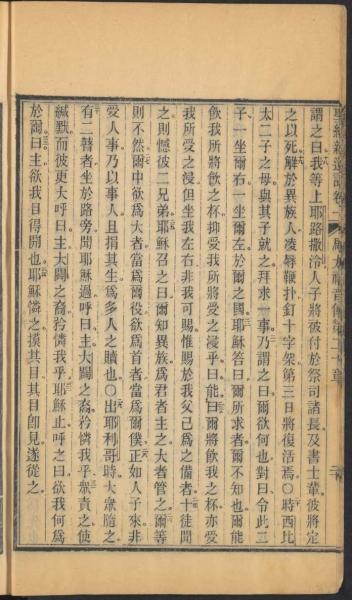 謂之曰我等上耶路撒冷人子將被付於祭司諸長及書士輩彼將定
之以死解於異族人凌辱鞭扑釘十字架第三日將復活焉○時西比
太二子之母與其子就之拜求一事乃謂之曰爾欲何也對曰令此二
子一坐爾右一坐爾左於爾之國耶穌答曰爾所求者爾不知也爾能
飲我所將飲之杯抑受我所將受之浸乎曰能曰爾將飲我之杯亦受
我所受之浸但坐我左右非我可賜惟賜於我父已爲之備者十徒聞
之則憾彼二兄弟耶穌召之曰爾知異族爲君者主之大者管之爾等
則不然爾中欲爲大者當爲爾役欲爲首者當爲爾僕正如人子來非
愛人事乃以事人且捐其生爲多人之贖也○出耶利哥時大衆隨之
有二瞽者坐於路旁聞耶穌過呼曰主大闢之裔矜憐我乎衆責之使
緘默而彼更大呼曰主大闢之裔矜憐我乎耶穌止呼之曰欲我何爲
於爾曰主欲我目得開也耶穌憐之摸其目其目卽見遂從之